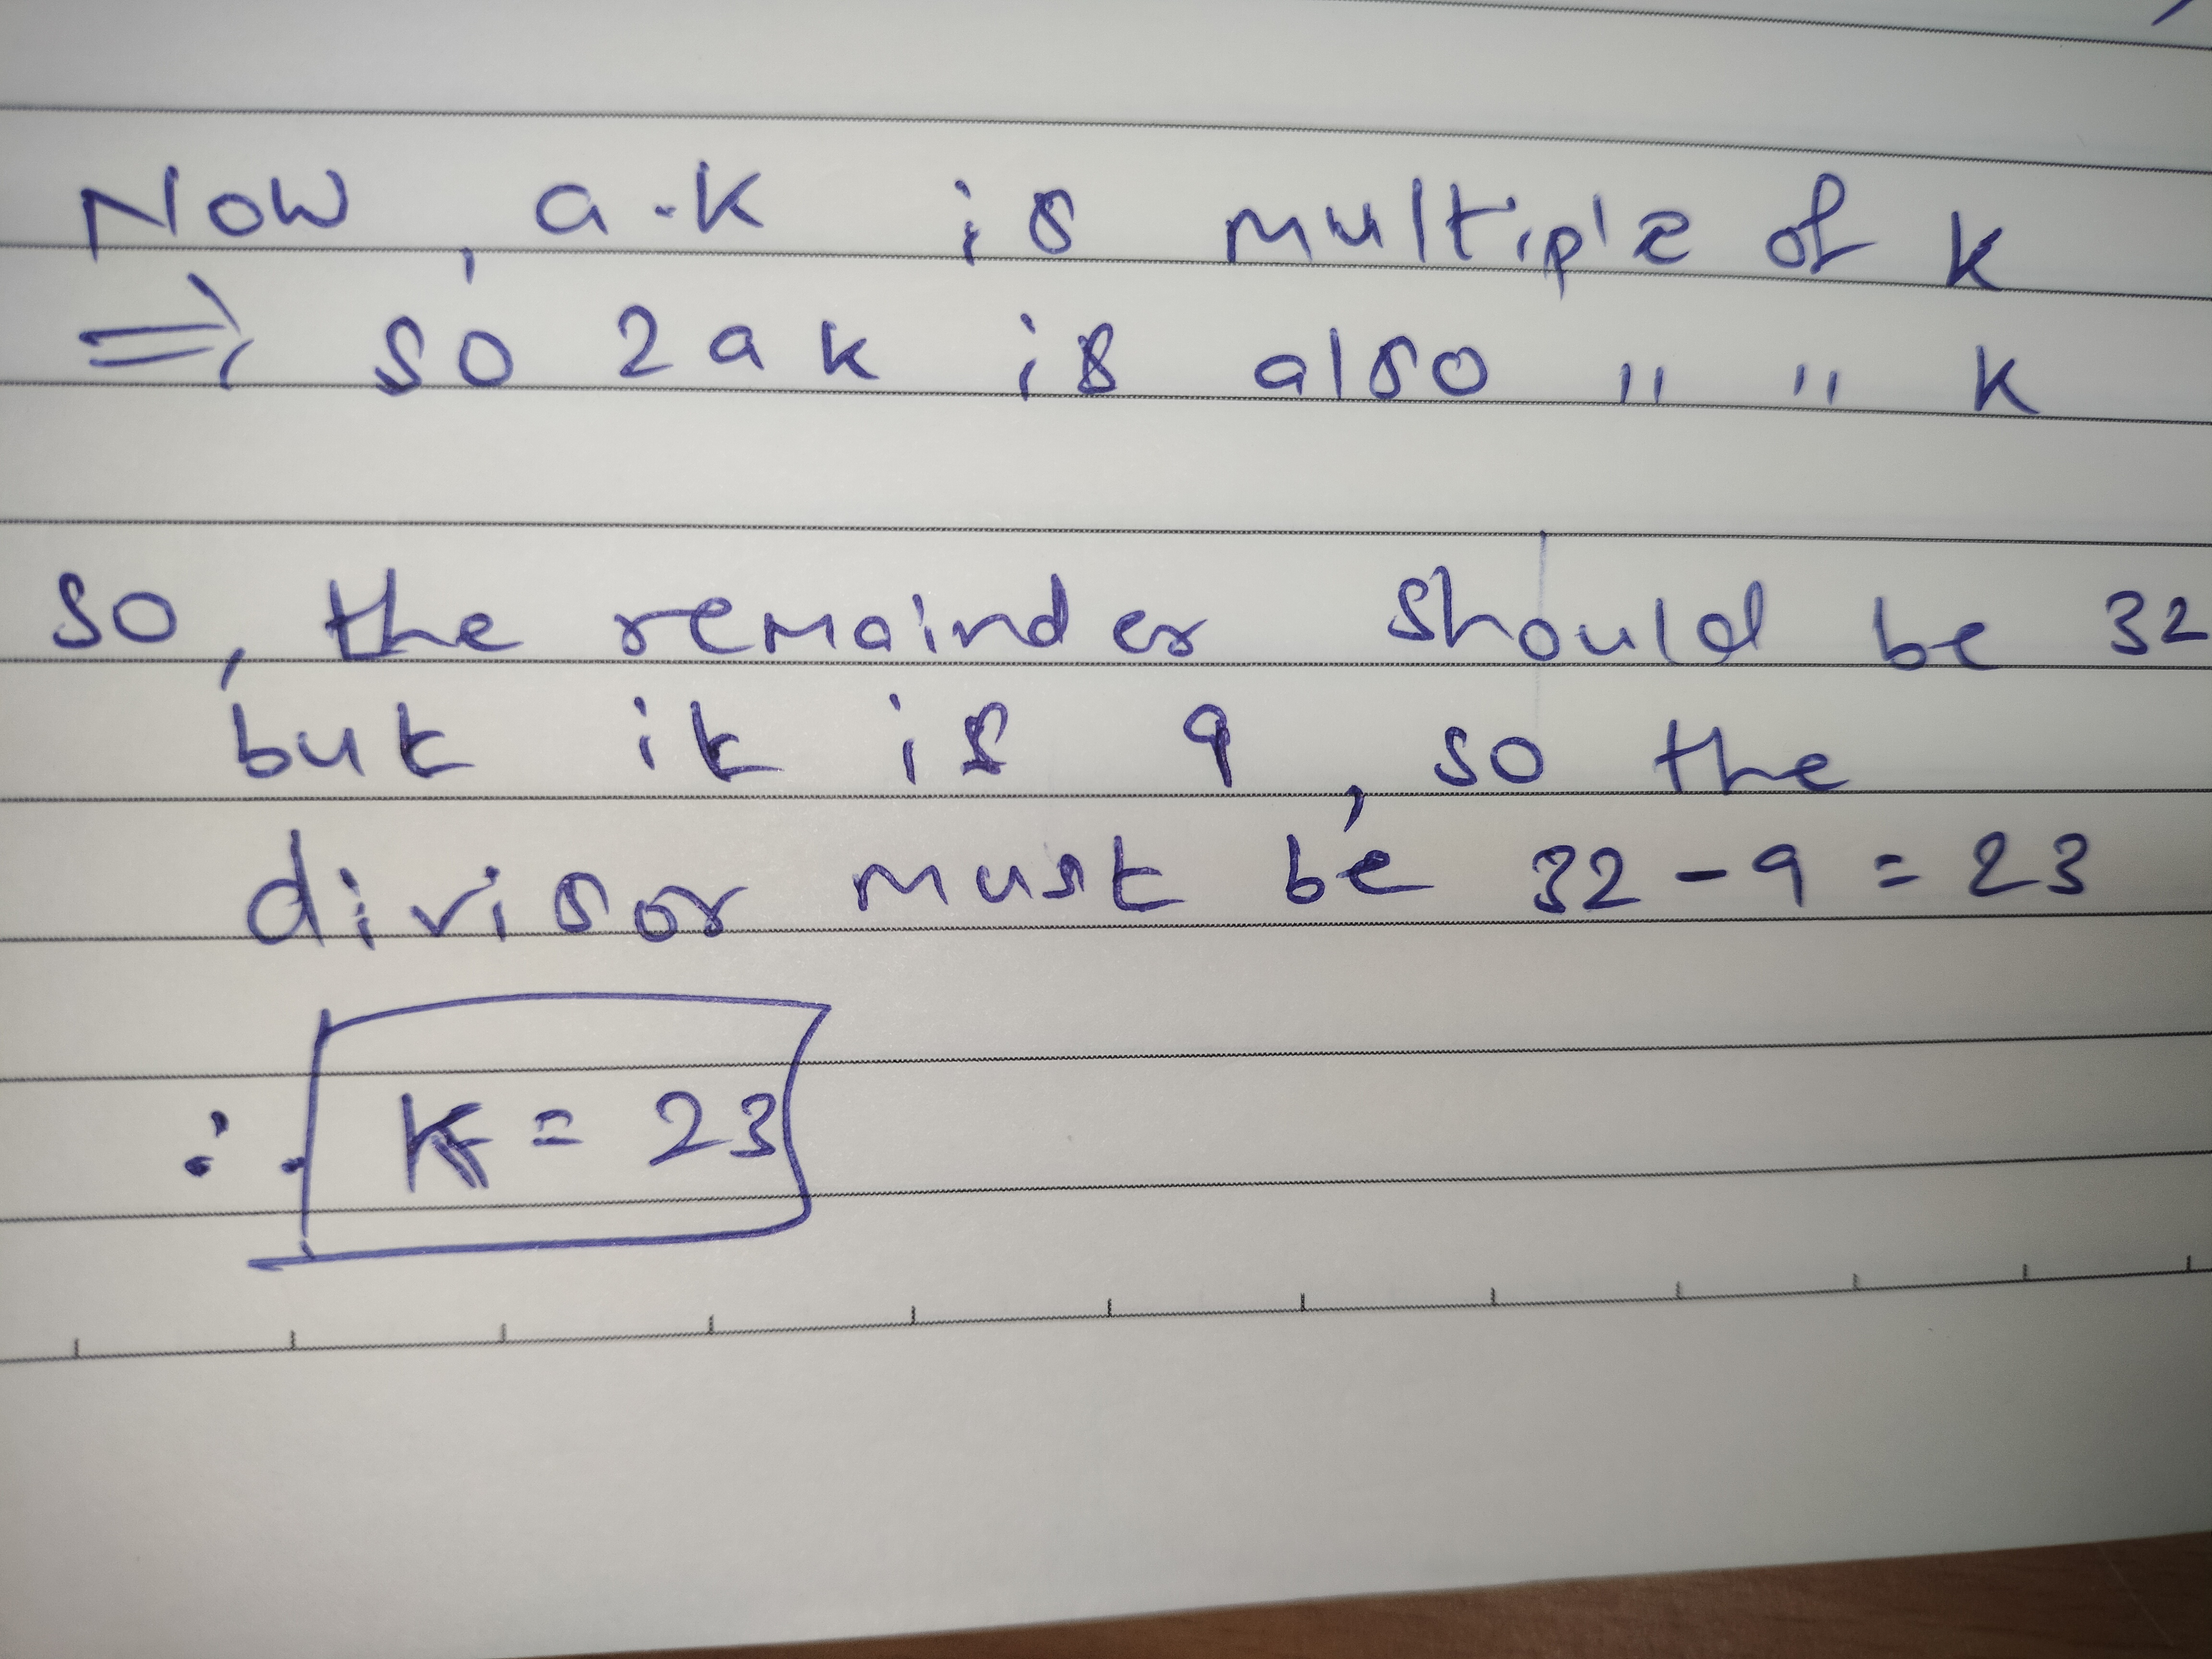 Now, a.k is multiple of k
⇒ so 2ak is also " " k
so, the remainder should be 32
but it is 9, so the
divisor must be 32 - 9 = 23
∴ k = 23